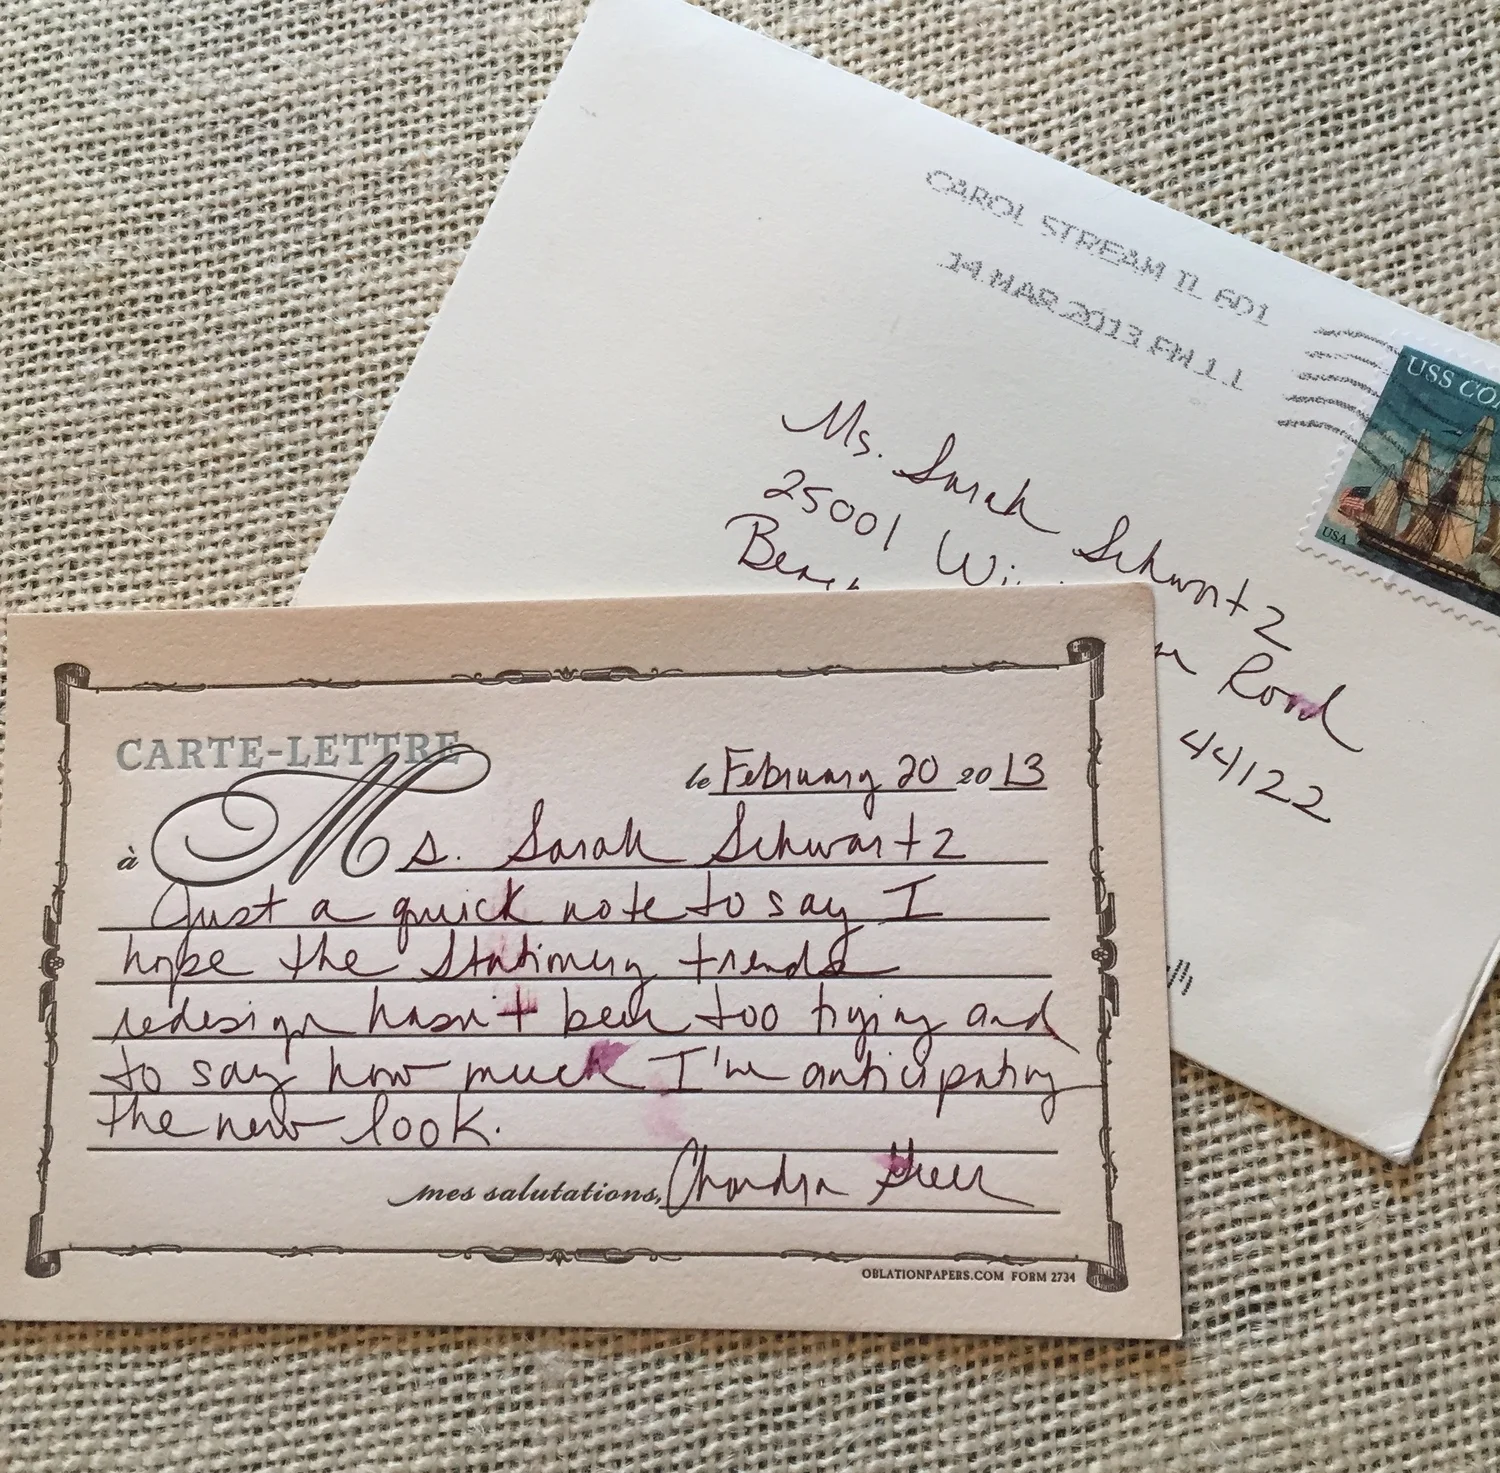 CAROL STREAM IL 601
14 MAR 2013 PM 1 L
USS CO
USA
Ms. Sarah Schwartz
25001 Road
44122
CARTE-LETTRE
le February 20 2013
à Ms. Sarah Schwartz
Just a quick note to say I
hope the Stationery trends
redesign hasn't been too trying and
to say how much I'm anticipating
the new look.
mes salutations, Chandra Greer
OBLATIONPAPERS.COM FORM 2734